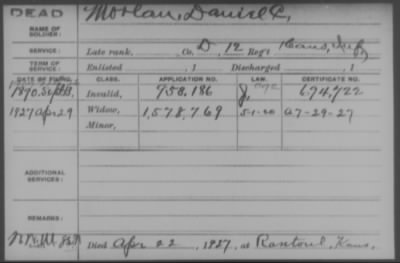 DEAD
NAME OF SOLDIER: Morlan, Daniel C.
SERVICE: Late rank, Co. D, 12 Reg't Kans, Inf
TERM OF SERVICE: Enlisted , 1 Discharged , 1
DATE OF FILING. CLASS. APPLICATION NO. LAW. CERTIFICATE NO.
1890. Sept Invalid, 958,186 674,722
1927 Apr 29 Widow, 1,578,769 5-1-20 A7-29-27
Minor,
ADDITIONAL SERVICES:
REMARKS:
Died Apr 22, 1927, at Rantoul, Kans.